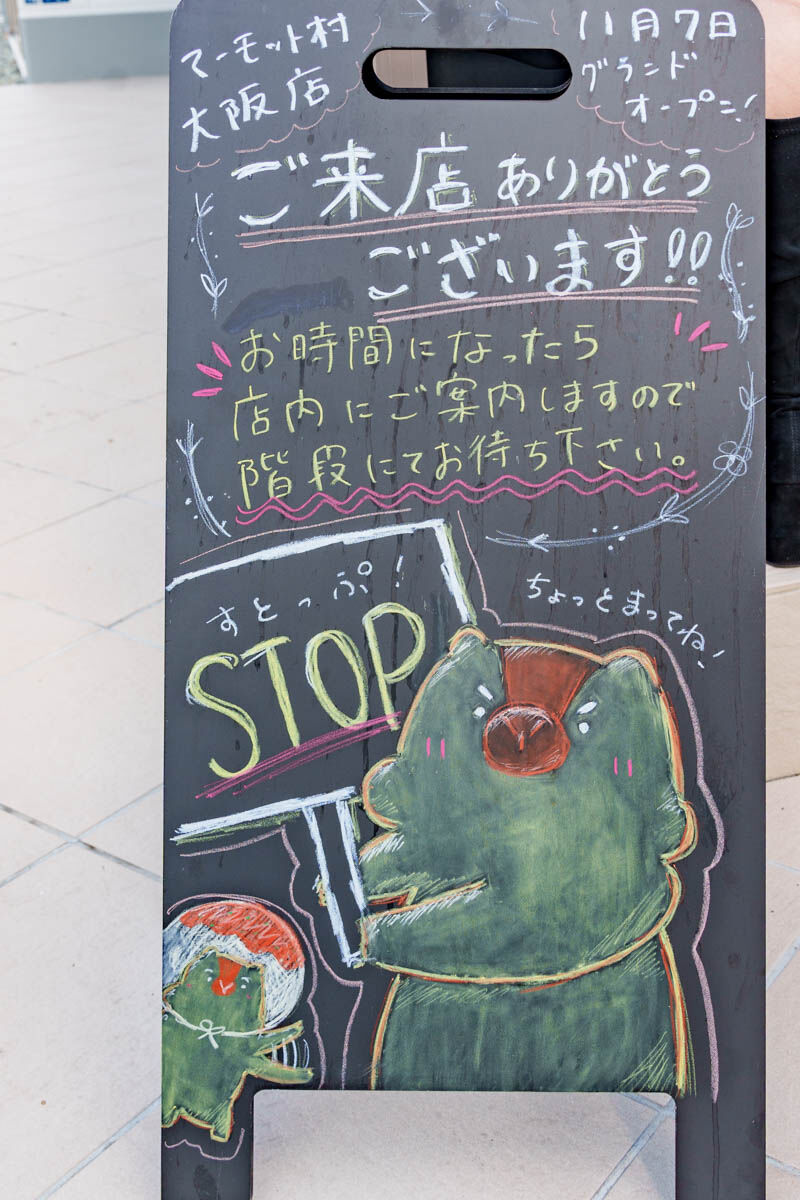 マーモット村
大阪店
11月7日
グランド
オープン!
ご来店ありがとう
ございます!!
お時間になったら
店内にご案内しますので
階段にてお待ち下さい。
すとっぷ!
STOP
ちょっとまってね!